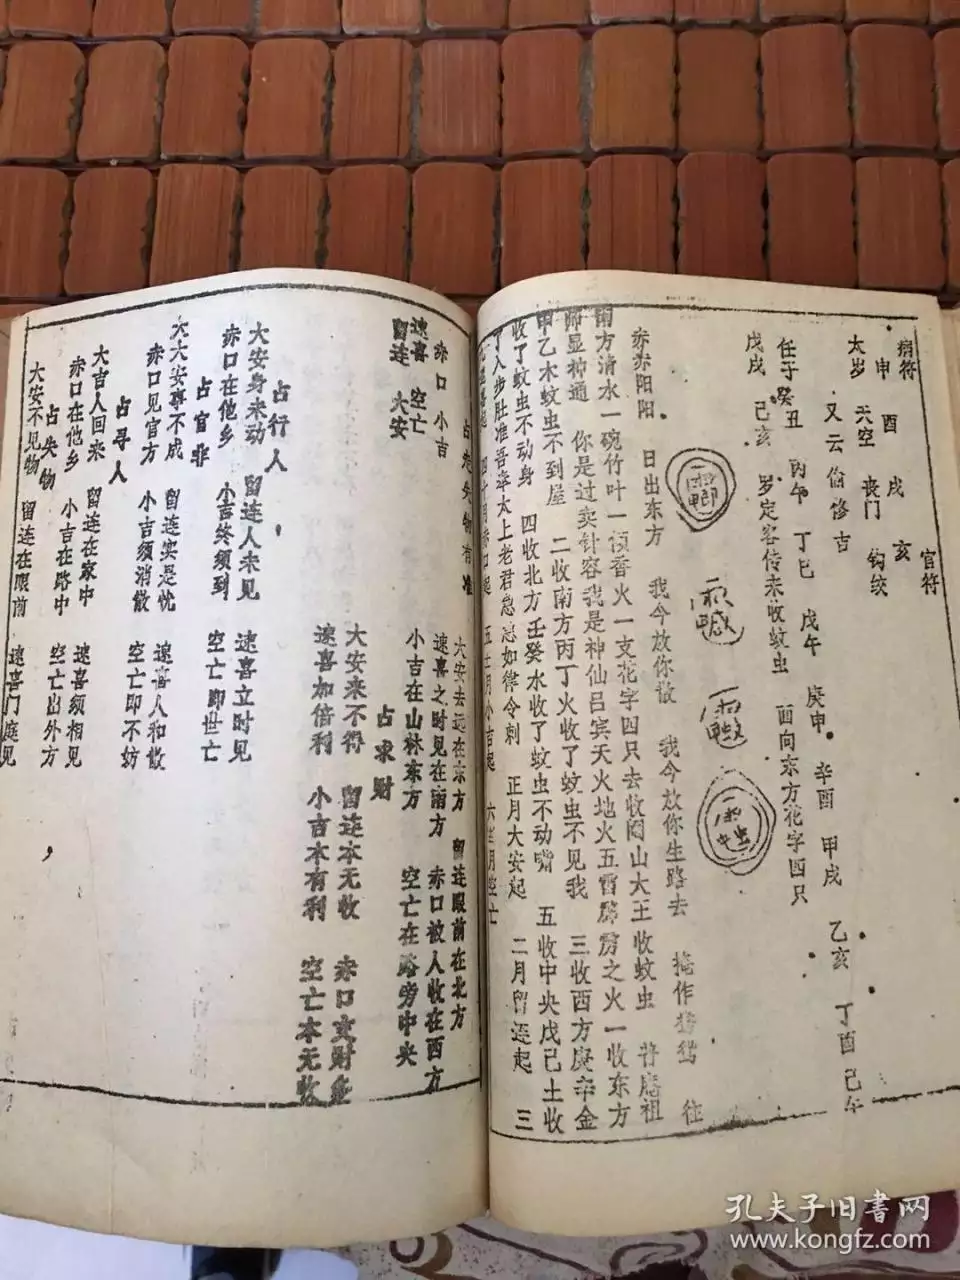 病符
官符
太岁 申 天空 酉 丧门 戌 钩绞 亥
又云俗修吉
壬子 癸丑 丙午 丁巳 戊午 庚申 辛酉 甲戌 乙亥 丁酉 己午
戊戌 己亥 罗定客传来收蚊虫 面向东方花字四只
赤赤阳阳 日出东方 我今放你散 我今放你生路去
往
南方清水一碗竹叶一 香火一支花字四只去收 山大王收蚊虫
师显神通 你是过卖针容我是神仙吕宾天火地火五雷霹雳之火一收东方
甲乙木蚊虫不到屋 二收南方丙丁火收了蚊虫不见我 三收西方庚辛金
收了蚊虫不动身 四收北方壬癸水收了蚊虫不动嘴 五收中央戊己土收
了人步肚准吾奉太上老君急急如律令刺 正月大安起 二月留连起 三
四十月赤口起 五十一月小吉起 六十二月空亡
赤口 小吉
速喜 空亡
留连 大安
占走失物有准
大安去远在东方 留连眼前在北方
速喜之时见在南方 赤口被人收在西方
小吉在山林东方 空亡在路旁中央
占求财
大安来不得 留连本无收 赤口文财
速喜加倍利 小吉本有利 空亡本无收
占行人
大安身未动 留连人未见 速喜立时见
赤口在他乡 小吉终须到 空亡即世亡
占官非
大安事不成 留连实是忧 速喜人和散
赤口见官方 小吉须消散 空亡即不妨
占寻人
大吉人回来 留连在家中 速喜须相见
赤口在他乡 小吉在路中 空亡出外方
占失物
大安不见物 留连在眼前 速喜门庭见
孔夫子旧书网
www.kongfz.com